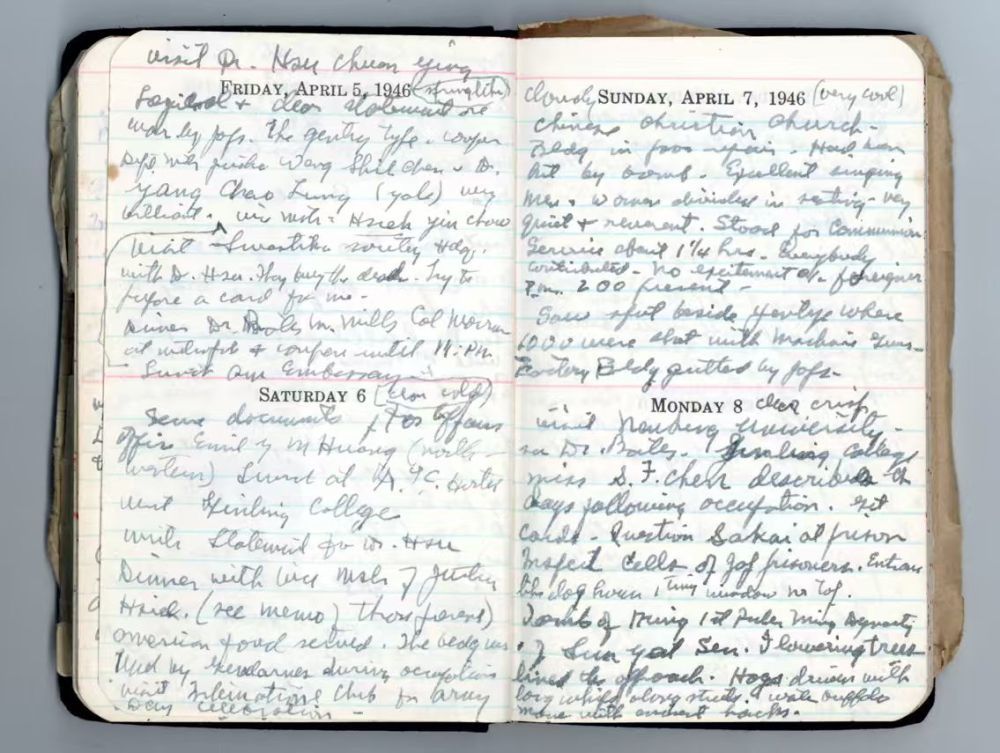 visit Dr. Hsu Chuan Ying
FRIDAY, APRIL 5, 1946 (springlike)
& clear statement re
war by Japs. The gentry type. confer
Wang Shih Chen & Dr.
Yang Chao Lung (Yale) very
brilliant. Vice Mstr. Hsieh Yin Chow
Visit Swastika Society Hdq.
with Dr. Hsu. They bury the dead. Try to
a card for me -
Dinner Dr. Bates Mr. Mills Col Morrow
at & confer until 11: PM.
Embassy
SATURDAY 6 (clear cold)
documents For Affairs
Office Emily M Huang (north-
western) at
visit Ginling College
with Statement for Dr. Hsu
Dinner with Vice Mstr of Justice
Hsieh. (see memo) (those present)
American food served. The bldg was
used by gendarmes during occupation
visit International Club for Army
Day celebration -
cloudy SUNDAY, APRIL 7, 1946 (very cool)
Chinese Christian Church -
Bldg in poor repair. Had been
hit by bomb. Excellent singing
Men & women divided in seating - very
quiet & reverent. Stood for Communion
Service about 1 1/4 hrs. Everybody
contributed - no excitement of foreigner
200 present -
Saw spot beside where
1000 were shot with Machine Guns -
Factory Bldg gutted by Japs -
MONDAY 8 clear crisp
visit Nanking University -
see Dr. Bates. Ginling College
Miss S. F. Chen describes the
days following occupation. Get
cards - Question Sakai at prison
Inspect cells of Jap prisoners. Entrance
like dog house 1 tiny window no
Tomb of Ming 1st Ruler Ming Dynasty
& of Sun Yat Sen. Flowering trees
lined the approach. Hogs driven with
long whips along streets. water buffalo
move with ancient